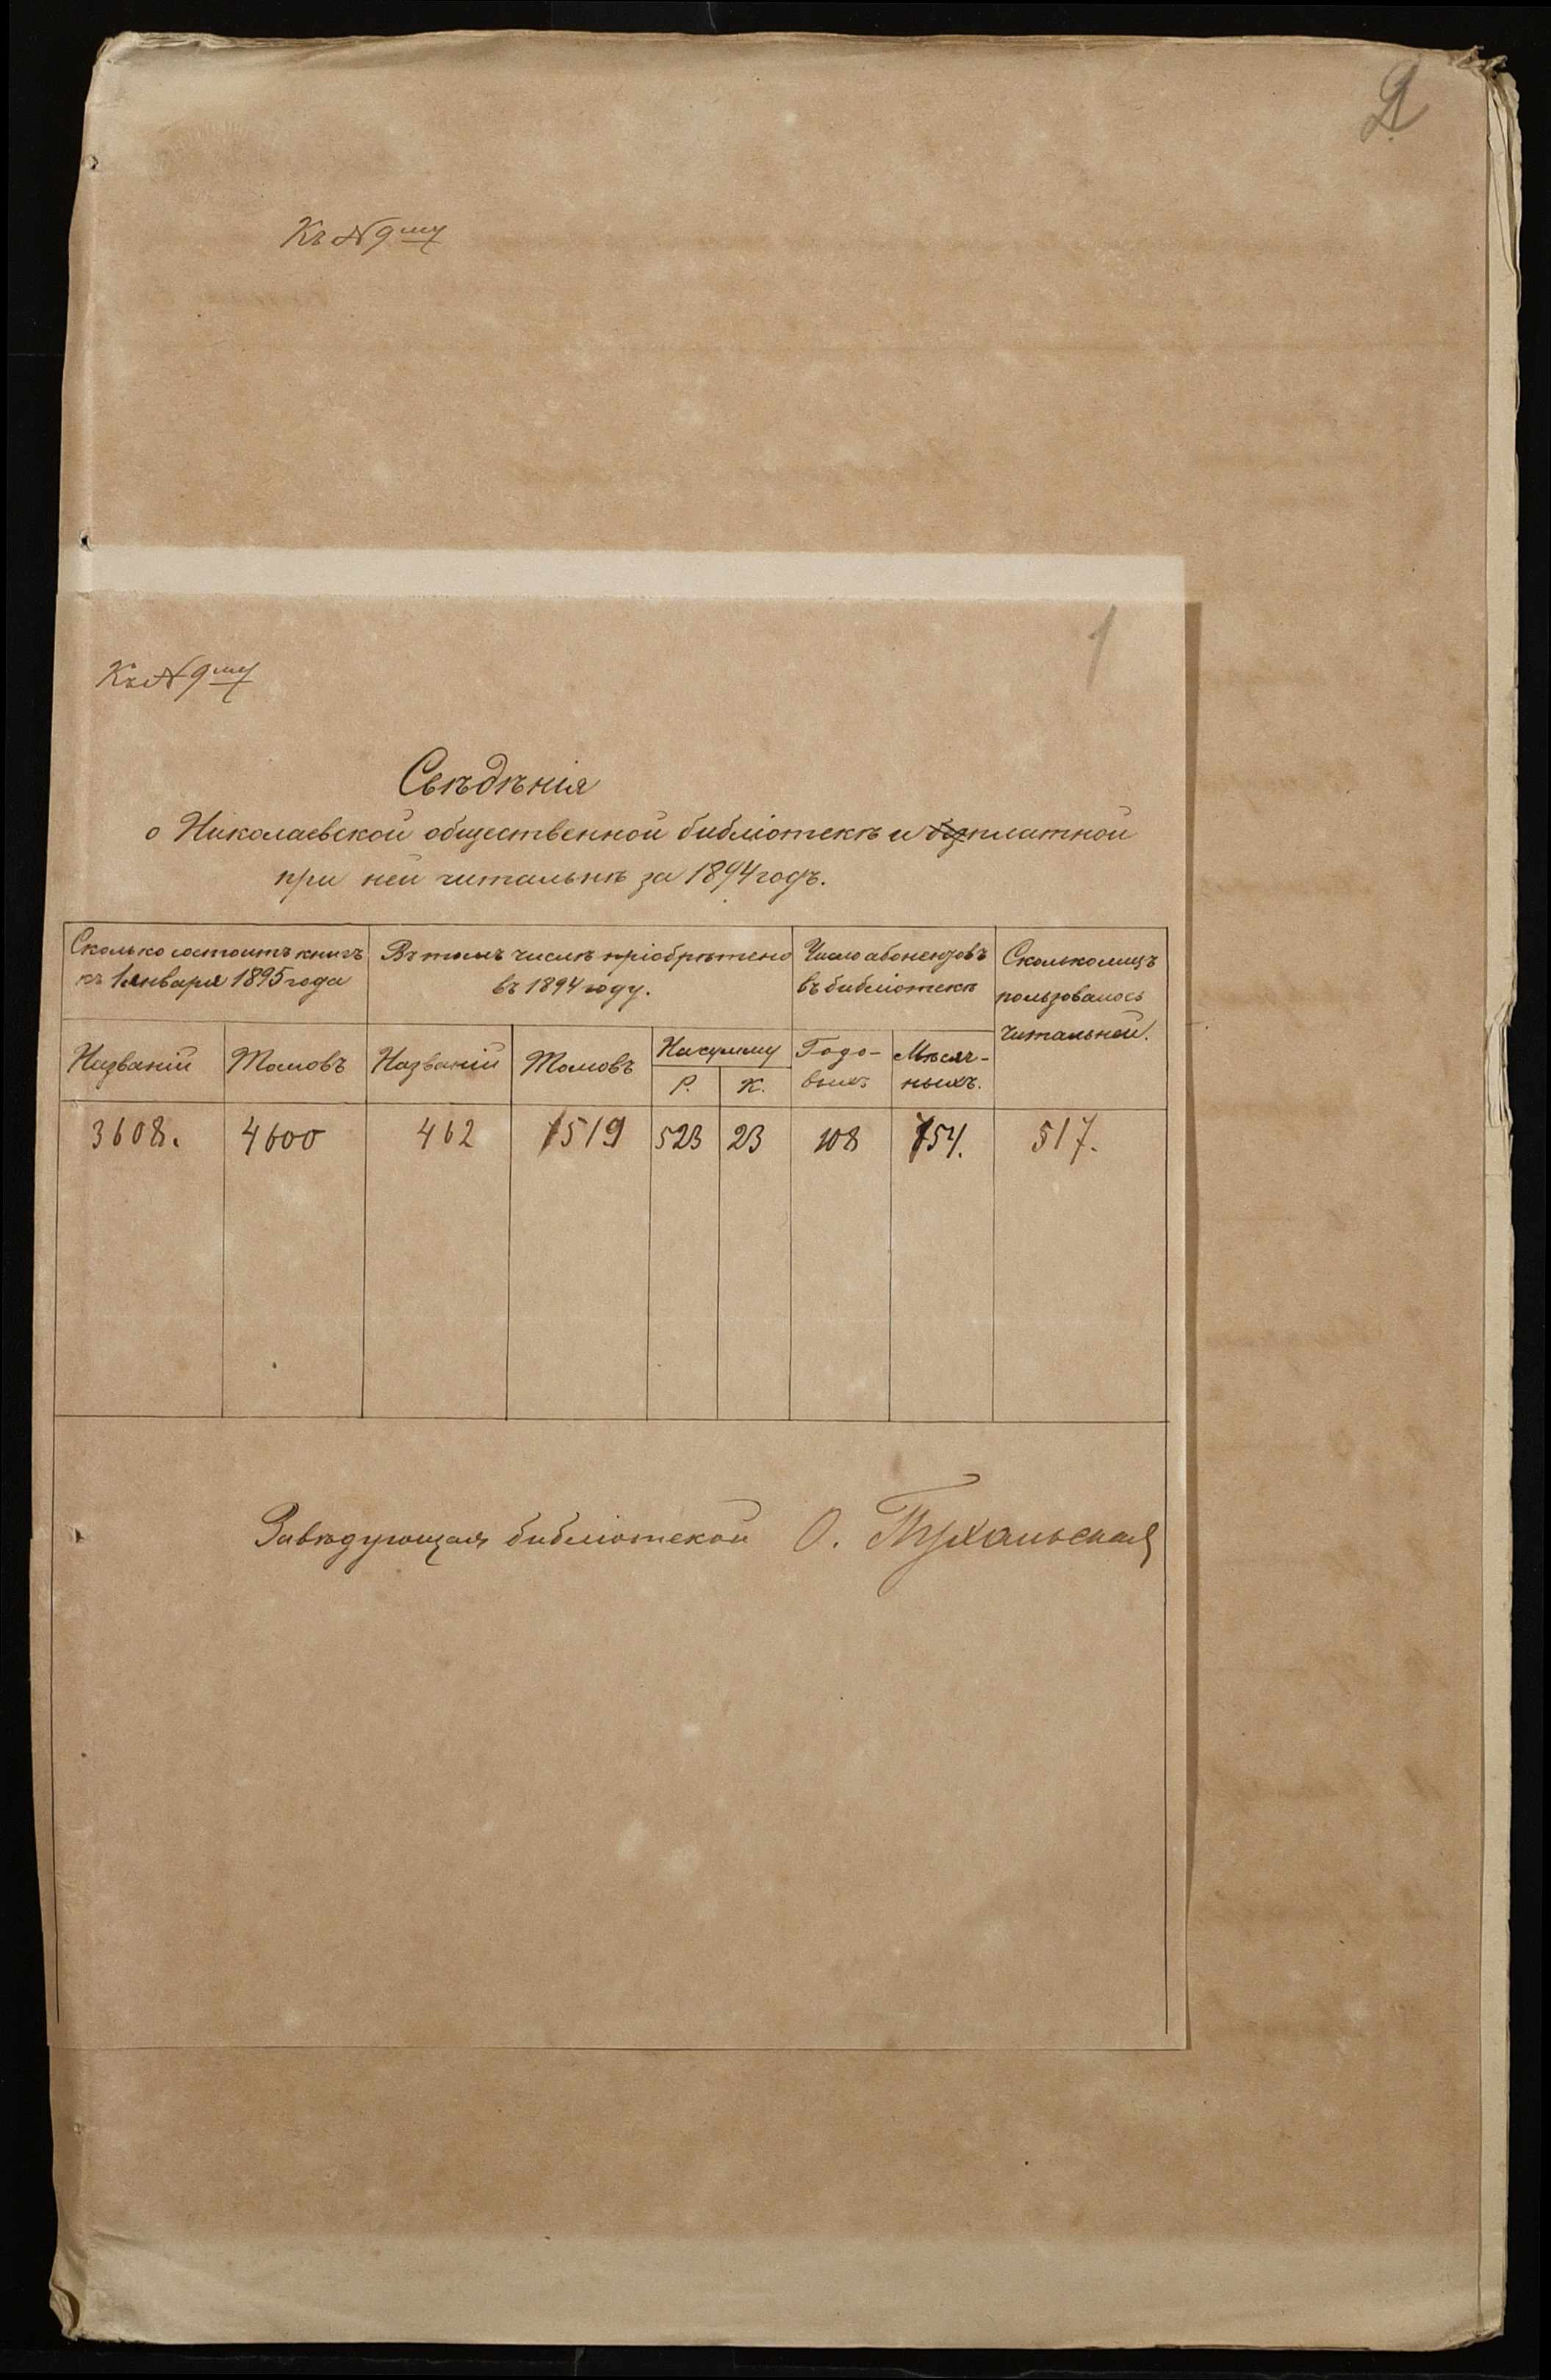 2
Къ № 9му
1
Къ № 9му
Свѣдѣнія
о Николаевской общественной библіотекѣ и безплатной
при ней читальнѣ за 1894 годъ.
Сколько состоитъ книгъ
къ 1 января 1895 года
Въ томъ числѣ пріобрѣтено
въ 1894 году.
Число абонентовъ
въ библіотекѣ
Сколько лицъ
пользовалось
читальней.
Названій
Томовъ
Названій
Томовъ
На сумму
Р.
К.
Годо-
выхъ
Мѣсяч-
ныхъ.
3608.
4600
462
1519
523
23
108
754.
517.
Завѣдующая библіотекой О. Тухальская